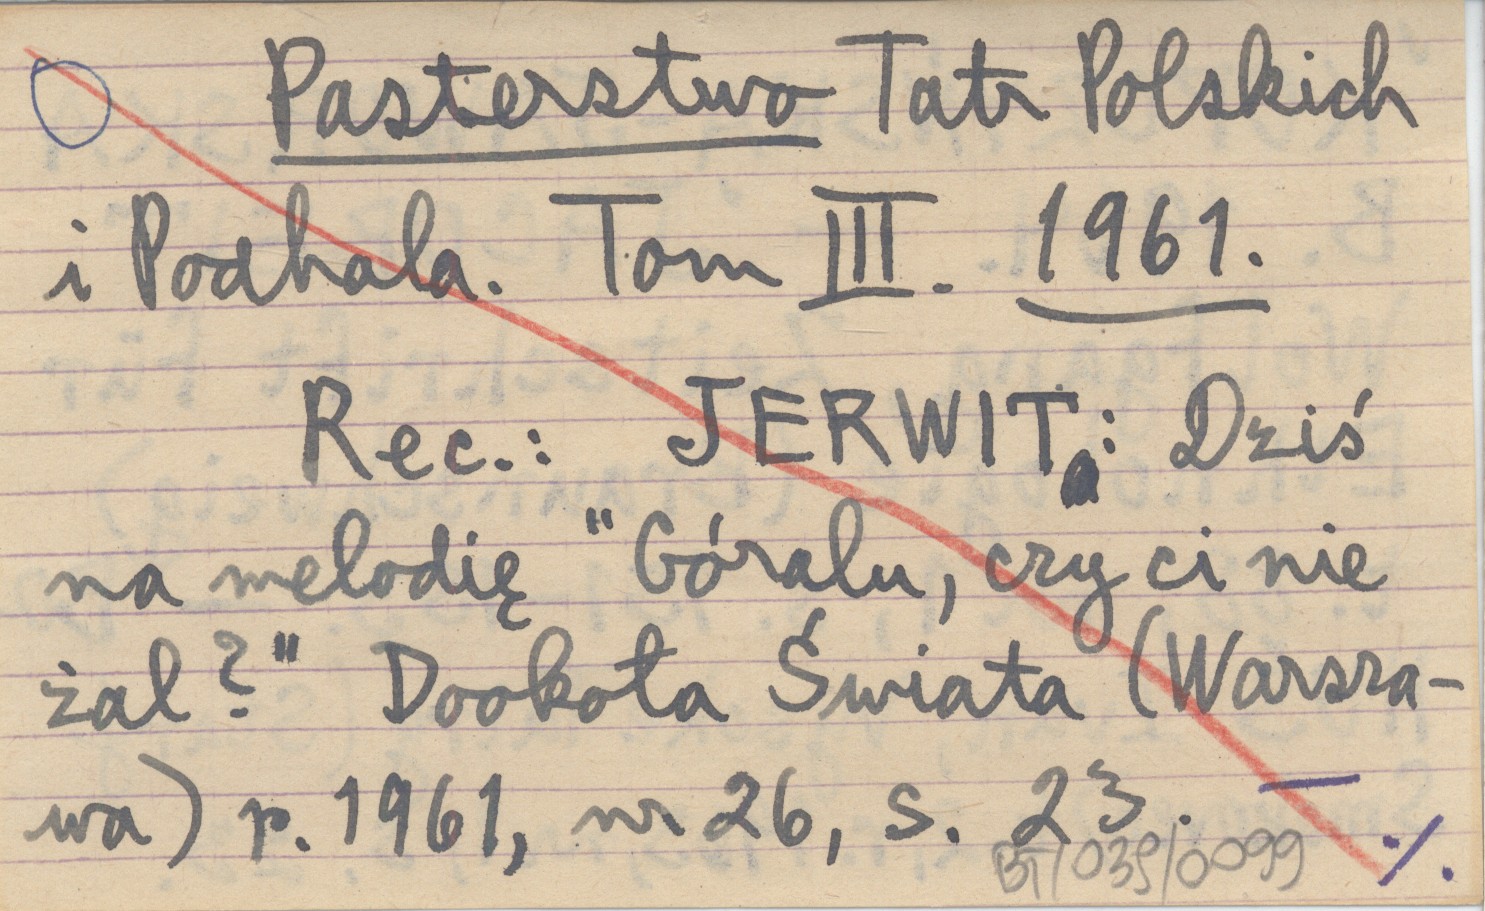 Pasterstwo Tatr Polskich
i Podhala. Tom III. 1961.
Rec.: JERWIT: Dziś
na melodię "Góralu, czy ci nie
żal?" Dookoła Świata (Warsza-
wa) r. 1961, nr 26, s. 23. —
BT/039/0099 ./.